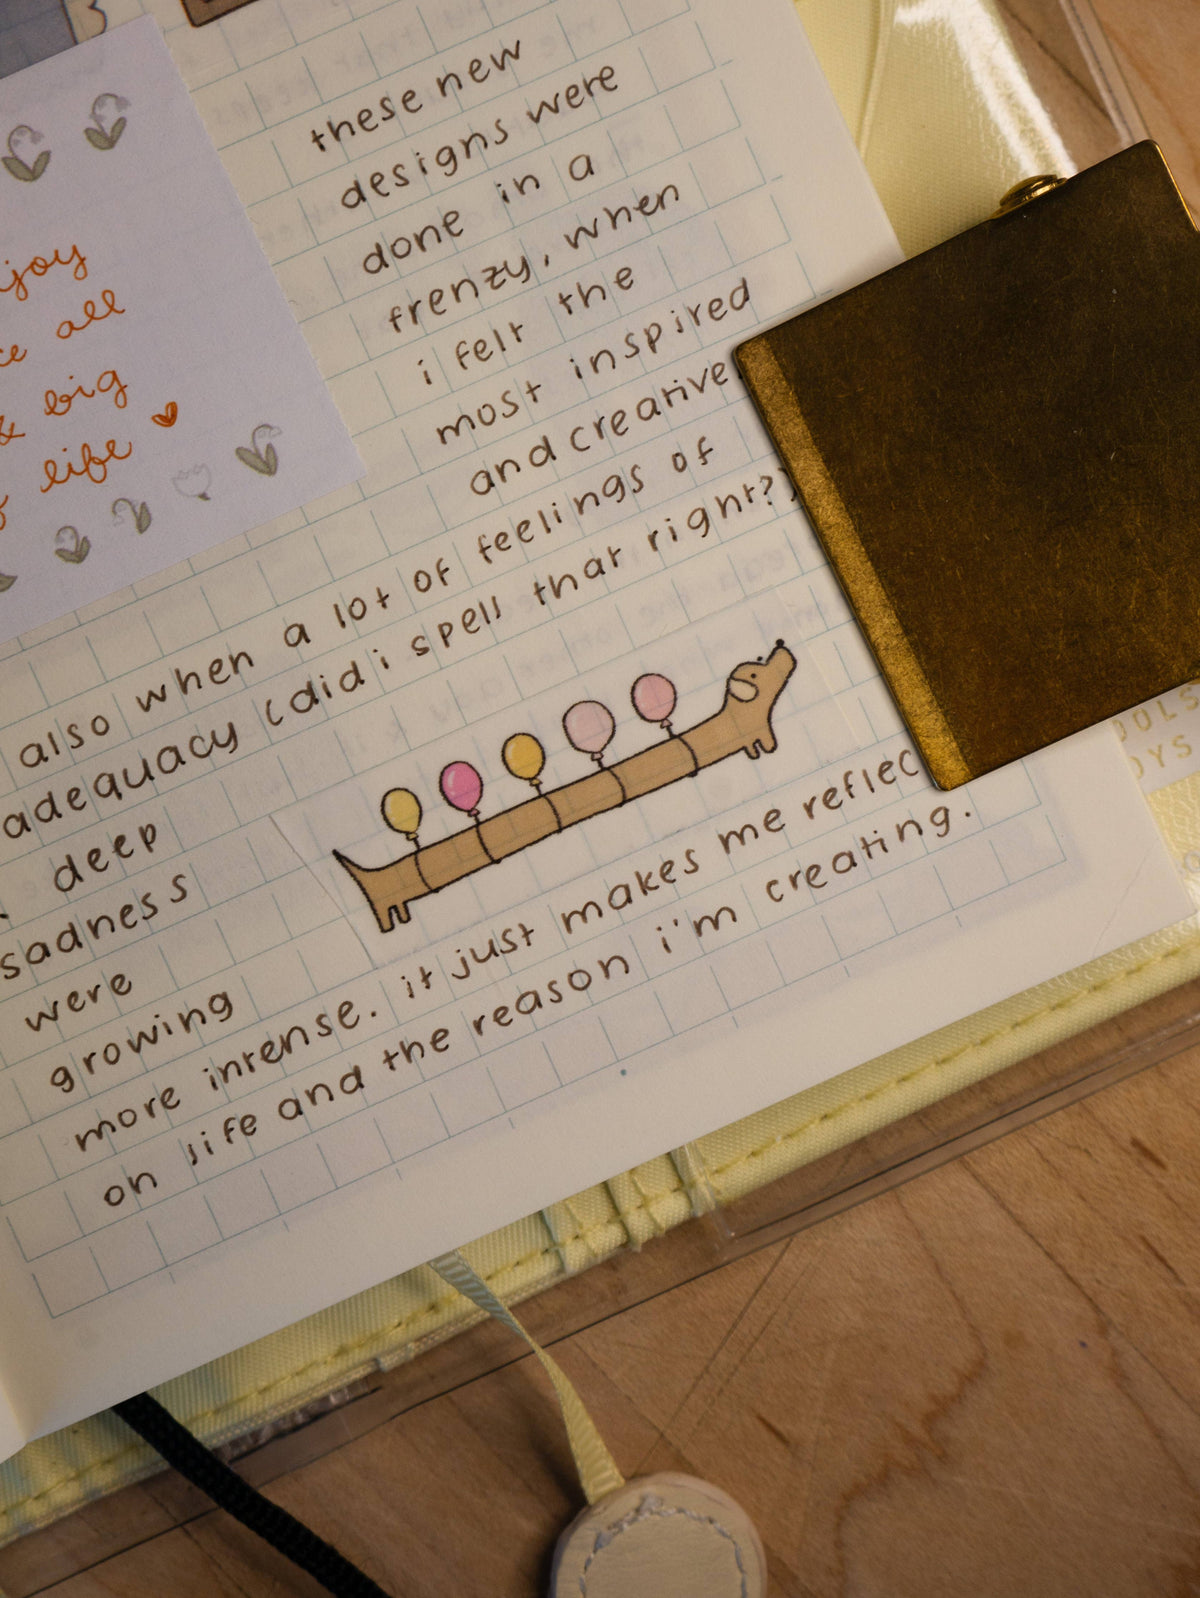 njoy
all
& big
life
these new
designs were
done in a
frenzy, when
i felt the
most inspired
and creative
also when a lot of feelings of
adequacy (did i spell that right?)
deep
sadness
were
growing
more intense. it just makes me reflec
on life and the reason i'm creating.
OOLS
OYS